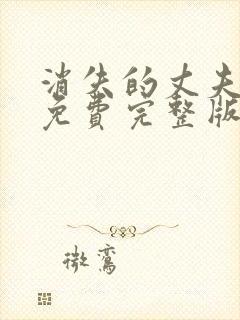 消失的丈夫
免费完整版
微鸾